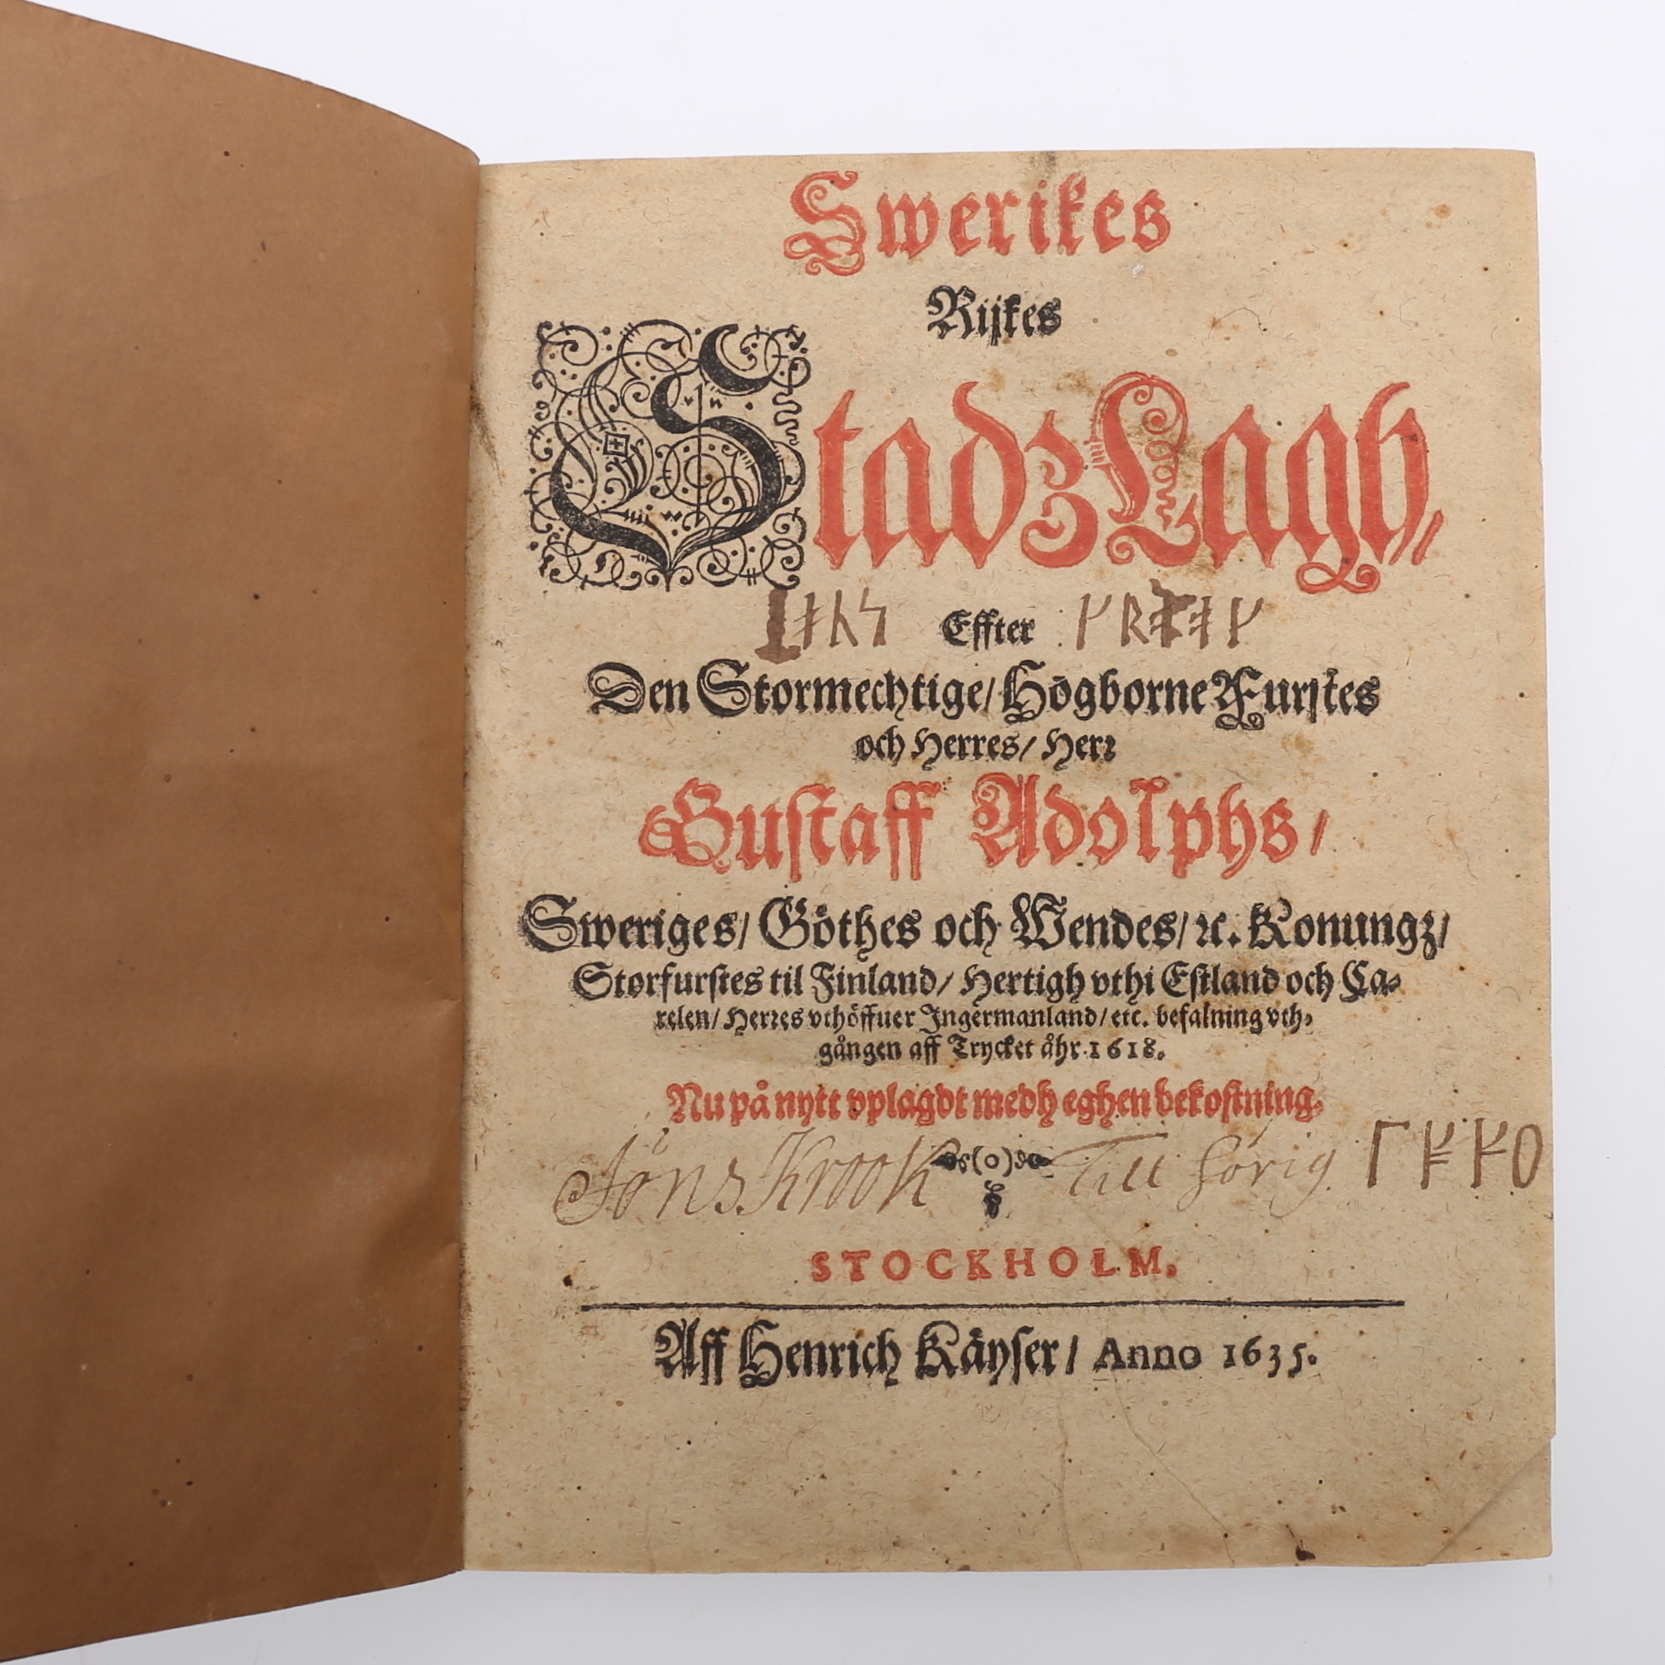 Swerikes
Rijkes
StadzLagh/
Effter
Den Stormechtige/ Högborne Furstes
och Herres/ Herr
Gustaff Adolphs/
Sweriges/ Göthes och Wendes/ ꝛc. Konungz/
Storfurstes til Finland/ Hertigh vthi Estland och Ca-
relen/ Herres vthöffuer Ingermanland/ etc. befalning vth-
gången aff Trycket åhr 1618.
Nu på nytt vplagdt medh eghen bekostning.
(o)
Jöns Krook Till hörig
STOCKHOLM.
Aff Henrich Käyser/ Anno 1635.